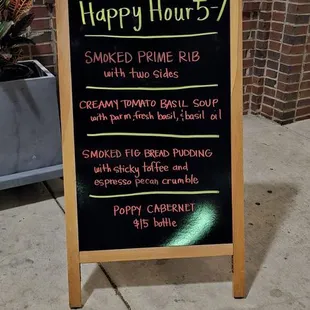 Happy Hour 5-7
SMOKED PRIME RIB
with two sides
CREAMY TOMATO BASIL SOUP
with parm, fresh basil, & basil oil
SMOKED FIG BREAD PUDDING
with sticky toffee and
espresso pecan crumble
POPPY CABERNET
$15 bottle